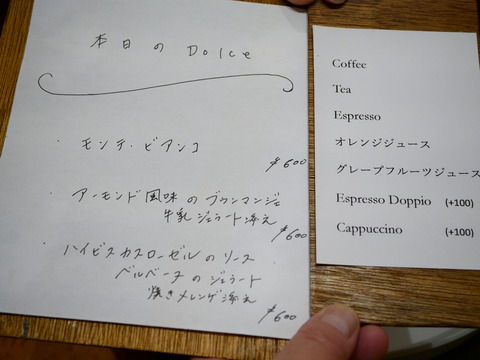 本日のDolce
・モンテ・ビアンコ
¥600
・アーモンド風味のブランマンジェ
牛乳ジェラート添え
¥600
・ハイビスカスローゼルのソース
ベルベーヌのジェラート
焼きメレンゲ添え
¥600
Coffee
Tea
Espresso
オレンジジュース
グレープフルーツジュース
Espresso Doppio (+100)
Cappuccino (+100)